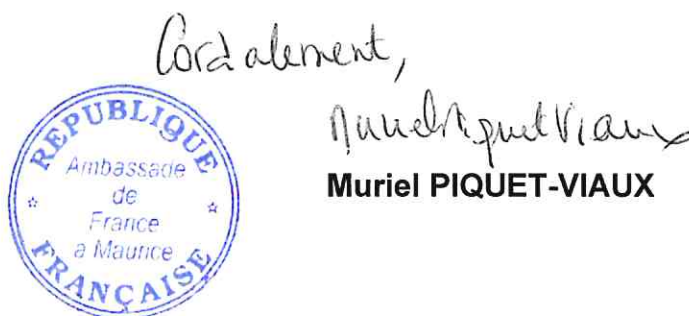 Cordialement,
Muriel Piquet Viaux
Muriel PIQUET-VIAUX
REPUBLIQUE
Ambassade
de
France
à Maurice
FRANÇAISE